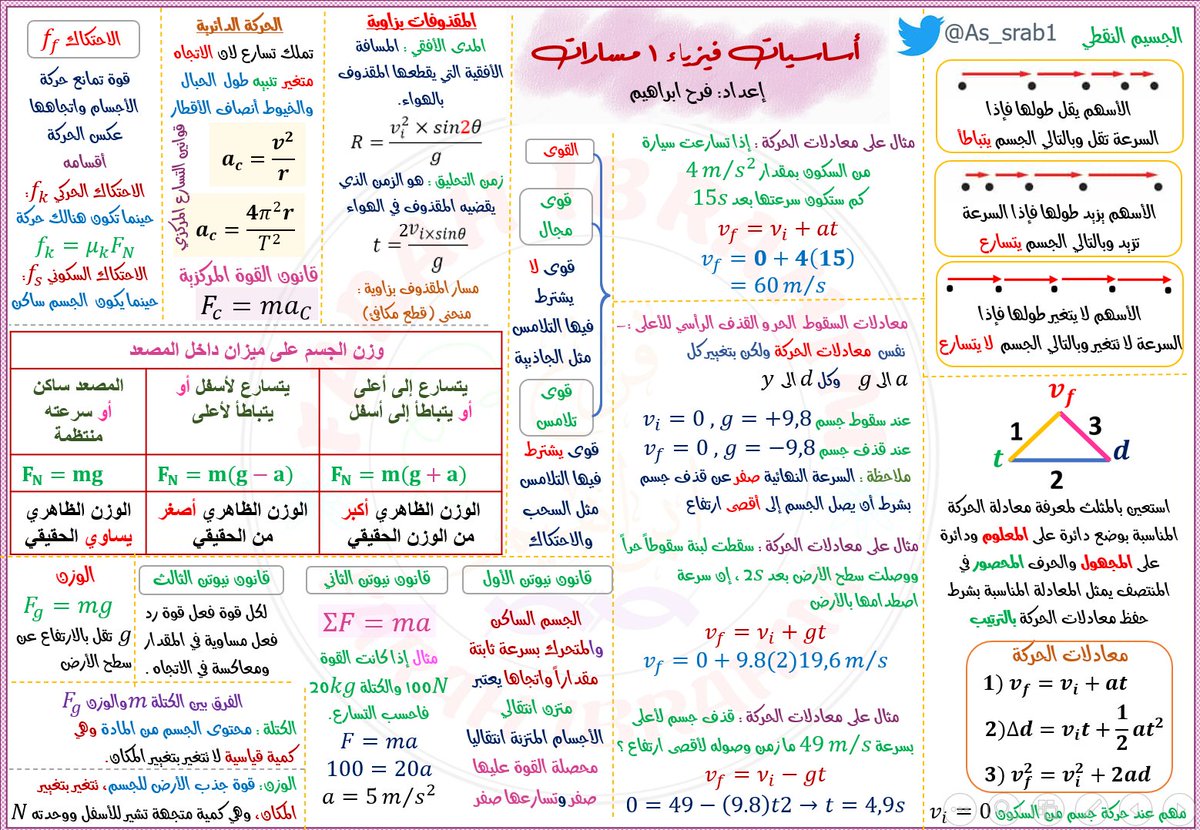 أساسيات فيزياء ١ مسارات
إعداد: فرح ابراهيم
@As_srab1
الجسيم النقطي
الأسهم يقل طولها فإذا
السرعة تقل وبالتالي الجسم يتباطأ
الأسهم يزيد طولها فإذا السرعة
تزيد وبالتالي الجسم يتسارع
الأسهم لا يتغير طولها فإذا
السرعة لا تتغير وبالتالي الجسم لا يتسارع
v_f
1
3
t
d
2
استعين بالمثلث لمعرفة معادلة الحركة
المناسبة بوضع دائرة على المعلوم ودائرة
على المجهول والحرف المحصور في
المنتصف يمثل المعادلة المناسبة بشرط
حفظ معادلات الحركة بالترتيب
معادلات الحركة
1) v_f = v_i + at
2) Δd = v_i t + 1/2 at²
3) v_f² = v_i² + 2ad
مهم عند حركة جسم من السكون v_i = 0
مثال على معادلات الحركة : إذا تسارعت سيارة
من السكون بمقدار 4 m/s²
كم ستكون سرعتها بعد 15s
v_f = v_i + at
v_f = 0 + 4(15)
= 60 m/s
معادلات السقوط الحر و القذف الرأسي للأعلى :-
نفس معادلات الحركة ولكن بتغيير كل
a الى g وكل d الى y
عند سقوط جسم v_i = 0 , g = +9,8
عند قذف جسم v_f = 0 , g = −9,8
ملاحظة : السرعة النهائية صفر عن قذف جسم
بشرط أن يصل الجسم إلى أقصى ارتفاع
مثال على معادلات الحركة : سقطت لبنة سقوطاً حراً
ووصلت سطح الأرض بعد 2s ، إن سرعة
اصطدامها بالأرض
v_f = v_i + gt
v_f = 0 + 9.8(2)19,6 m/s
مثال على معادلات الحركة : قذف جسم لأعلى
بسرعة 49 m/s ما زمن وصوله لأقصى ارتفاع ؟
v_f = v_i − gt
0 = 49 − (9.8)t2 → t = 4,9s
القوى
قوى
مجال
قوى لا
يشترط
فيها التلامس
مثل الجاذبية
قوى
تلامس
قوى يشترط
فيها التلامس
مثل السحب
والاحتكاك
المقذوفات بزاوية
المدى الأفقي : المسافة
الأفقية التي يقطعها المقذوف
بالهواء.
R = v_i² × sin2θ / g
زمن التحليق : هو الزمن الذي
يقضيه المقذوف في الهواء
t = 2v_i×sinθ / g
مسار المقذوف بزاوية :
منحنى ( قطع مكافئ )
الحركة الدائرية
تملك تسارع لان الاتجاه
متغير تنبيه طول الحبال
والخيوط أنصاف الأقطار
قوانين التسارع المركزي
a_c = v² / r
a_c = 4π²r / T²
قانون القوة المركزية
F_c = ma_C
الاحتكاك f_f
قوة تمانع حركة
الأجسام واتجاهها
عكس الحركة
أقسامه
الاحتكاك الحركي f_k:
حينما تكون هنالك حركة
f_k = μ_k F_N
الاحتكاك السكوني f_s:
حينما يكون الجسم ساكن
وزن الجسم على ميزان داخل المصعد
يتسارع إلى أعلى
أو يتباطأ إلى أسفل
يتسارع لأسفل أو
يتباطأ لأعلى
المصعد ساكن
أو سرعته
منتظمة
F_N = m(g + a)
F_N = m(g − a)
F_N = mg
الوزن الظاهري أكبر
من الوزن الحقيقي
الوزن الظاهري أصغر
من الحقيقي
الوزن الظاهري
يساوي الحقيقي
قانون نيوتن الأول
الجسم الساكن
والمتحرك بسرعة ثابتة
مقداراً واتجاها يعتبر
متزن انتقالي
الأجسام المتزنة انتقاليا
محصلة القوة عليها
صفر وتسارعها صفر
قانون نيوتن الثاني
ΣF = ma
مثال إذا كانت القوة
100N والكتلة 20kg
فاحسب التسارع.
F = ma
100 = 20a
a = 5 m/s²
قانون نيوتن الثالث
لكل قوة فعل قوة رد
فعل مساوية في المقدار
ومعاكسة في الاتجاه .
الوزن
F_g = mg
g تقل بالارتفاع عن
سطح الأرض
الفرق بين الكتلة m والوزن F_g
الكتلة : محتوى الجسم من المادة وهي
كمية قياسية لا تتغير بتغيير المكان.
الوزن: قوة جذب الأرض للجسم، تتغير بتغيير
المكان، وهي كمية متجهة تشير للأسفل ووحدته N